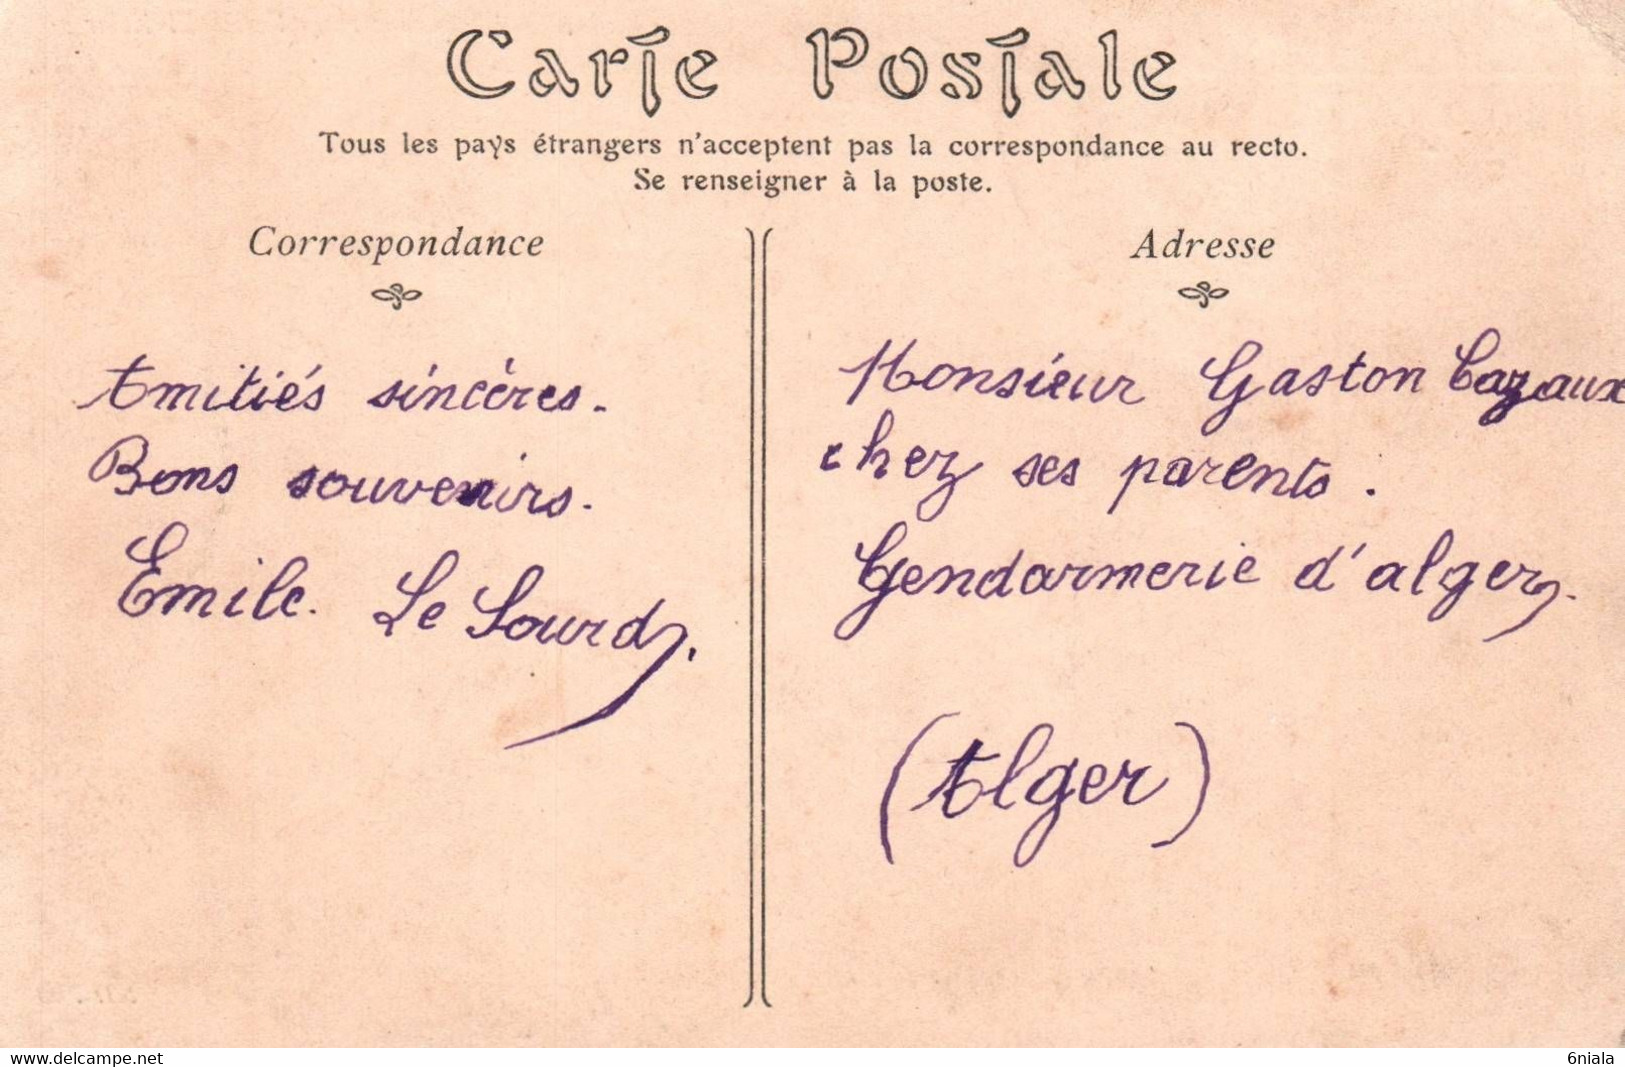 Carte Postale
Tous les pays étrangers n'acceptent pas la correspondance au recto.
Se renseigner à la poste.
Correspondance
Amitiés sincères.
Bons souvenirs.
Emile. Le Sourd.
Adresse
Monsieur Gaston Cazaux
chez ses parents.
Gendarmerie d'alger.
(Alger)
www.delcampe.net
6niala